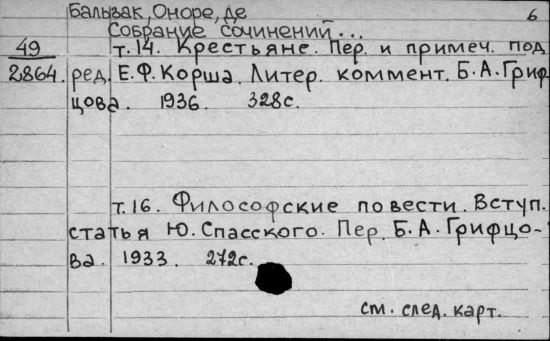 Бальзак, Оноре, де 6
Собрание сочинений...
49 т.14. Крестьяне. Пер. и примеч. под
2864. ред. Е.Ф.Корша. Литер. коммент. Б.А.Гриф-
цова. 1936. 328с.
т.16. Философские повести. Вступ.
статья Ю.Спасского. Пер. Б.А.Грифцо-
ва. 1933. 272с.
см. след. карт.